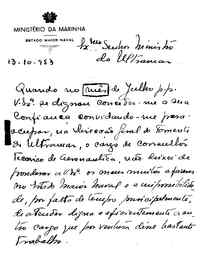 MINISTÉRIO DA MARINHA
ESTADO MAIOR NAVAL
Exmo Senhor Ministro
do Ultramar
13-10-953
Quando no mês de Julho p.p.
V. Exa. se dignou conceder-me a sua
confiança convidando-me para
ocupar, na Direcção Geral de Fomento
do Ultramar, o cargo de conselheiro
Técnico de Aeronautica, não deixei de
ponderar a V. Exa. os meus muitos afazeres
no Estado Maior Naval e a impossibilidade
de, por falta de tempo principalmente,
de atender digna e eficientemente a outro
cargo que por ventura desse bastante
trabalho.